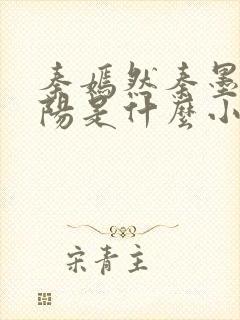 秦嫣然秦墨
陽是什麼小
宋青主